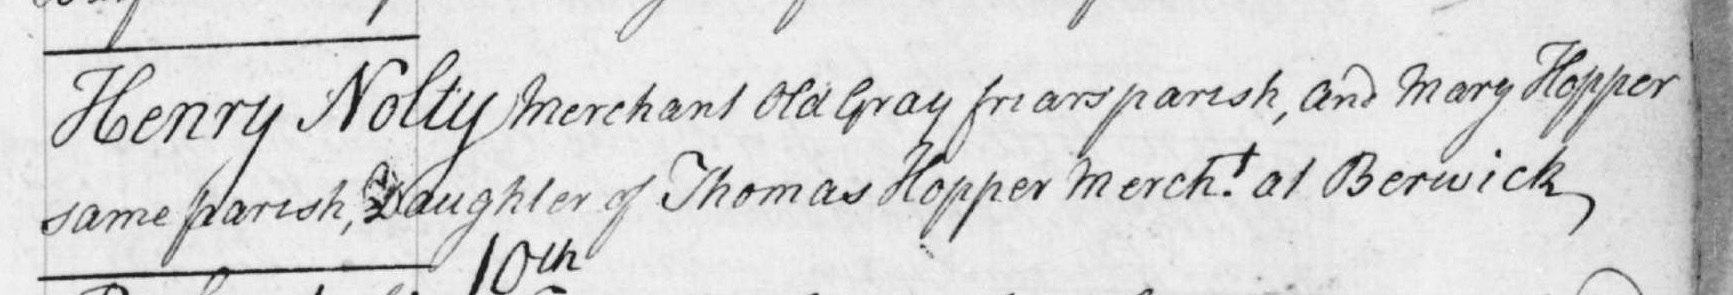 Henry Nolty Merchant Old Gray friars parish, and Mary Hopper
same parish, Daughter of Thomas Hopper Mercht. at Berwick
10th